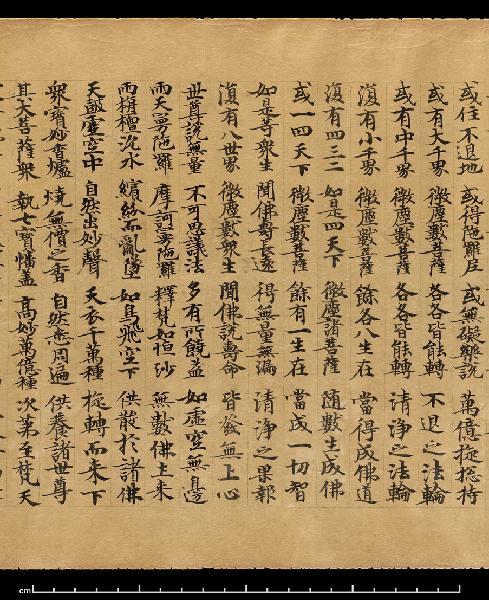 或住不退地 或得陁羅尼 或無礙樂說 萬億旋揔持
或有大千界 微塵數菩薩 各各皆能轉 不退之法輪
或有中千界 微塵數菩薩 各各皆能轉 清淨之法輪
復有小千界 微塵數菩薩 餘各八生在 當得成佛道
復有四三二 如是四天下 微塵諸菩薩 隨數生成佛
或一四天下 微塵數菩薩 餘有一生在 當成一切智
如是等衆生 聞佛壽長遠 得無量無漏 清淨之果報
復有八世界 微塵數衆生 聞佛說壽命 皆發無上心
世尊說無量 不可思議法 多有所饒益 如虛空無邊
雨天曼陁羅 摩訶曼陁羅 釋梵如恒沙 無數佛土來
雨栴檀沈水 繽紛而亂墜 如鳥飛空下 供散於諸佛
天鼓虛空中 自然出妙聲 天衣千萬種 旋轉而來下
衆寶妙香爐 燒無價之香 自然悉周遍 供養諸世尊
其大菩薩衆 執七寶幡蓋 高妙萬億種 次第至梵天